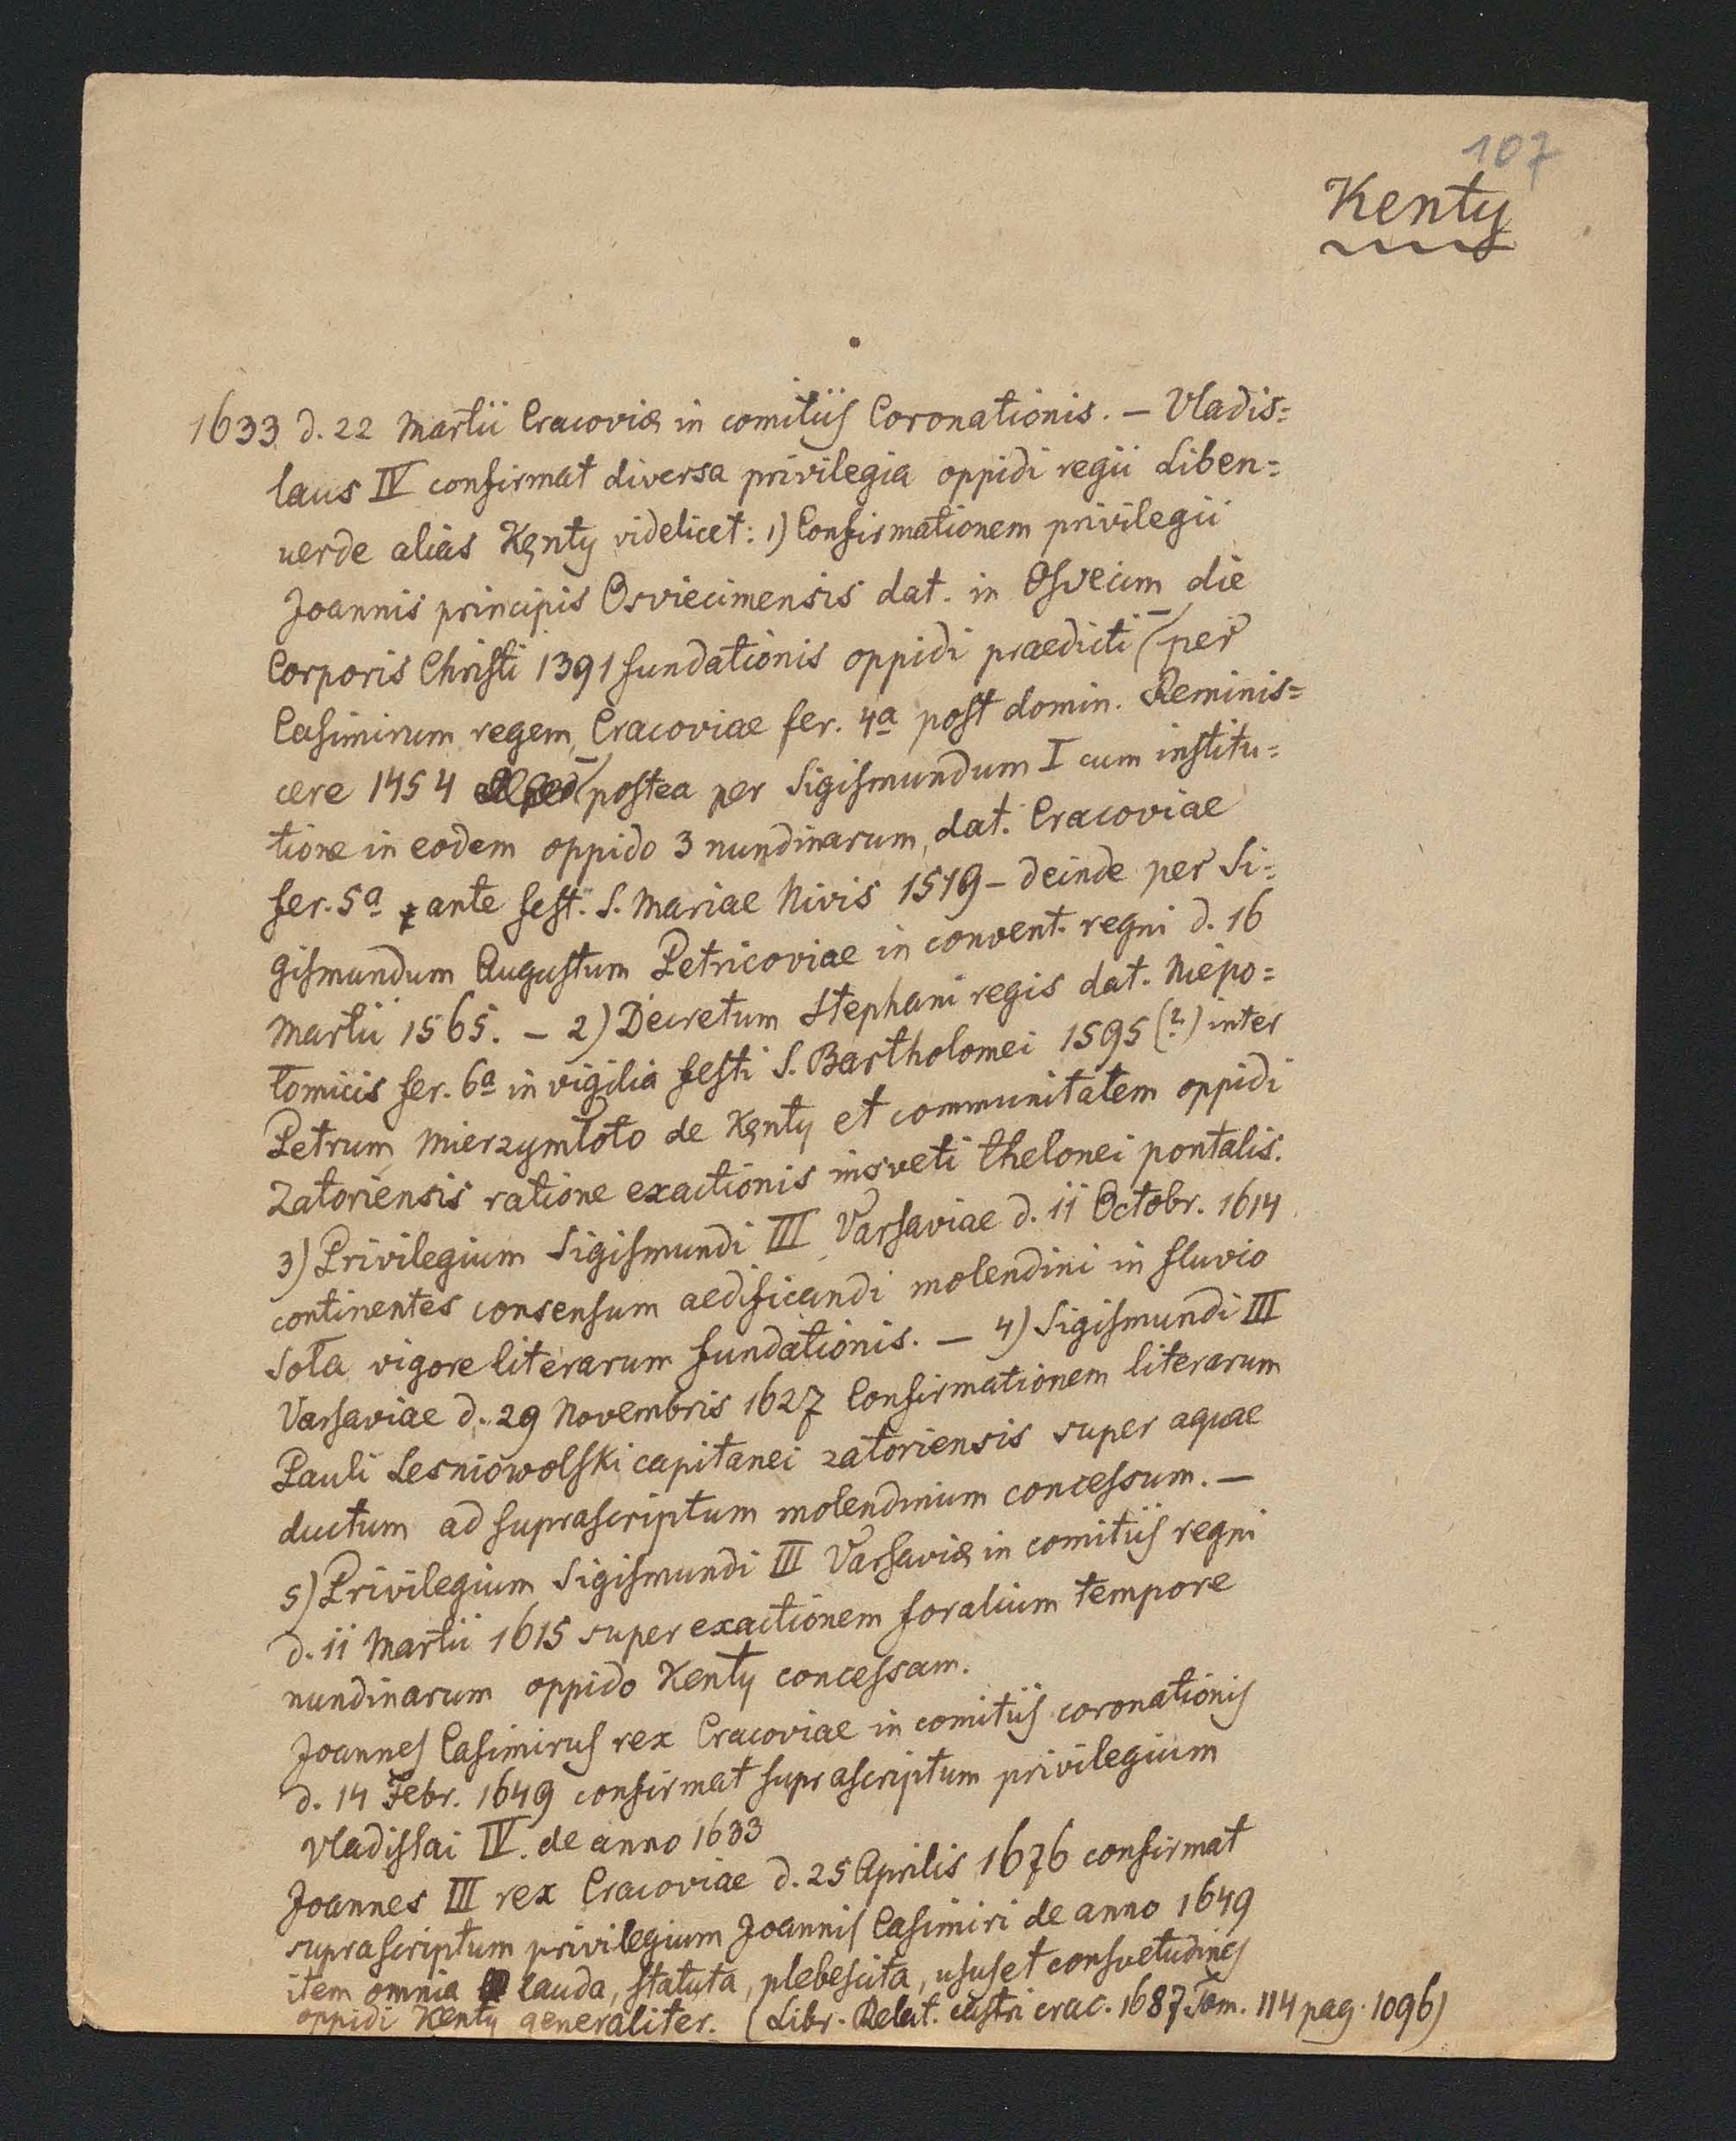 107
Kenty
1633 d. 22 Martii Cracoviæ in comitiis Coronationis. — Vladis=
laus IV confirmat diversa privilegia oppidi regii Liben=
uerde alias Kęnty videlicet: 1) Confirmationem privilegii
Joannis principis Osviecimensis dat. in Osvecim die
Corporis Christi 1391 fundationis oppidi praedicti (per
Casimirum regem, Cracoviae fer. 4a post domin. Reminis=
cere 1454 postea per Sigismundum I cum institu=
tione in eodem oppido 3 nundinarum, dat. Cracoviae
fer. 5a ante fest. S. Mariae Nivis 1519 – deinde per Si=
gismundum Augustum Petricoviae in convent. regni d. 16
Martii 1565. – 2) Decretum Stephani regis dat. Niepo=
tomicis fer. 6a in vigilia festi S. Bartholomei 1595 (?) inter
Petrum Mierzymłoto de Kęnty et communitatem oppidi
Zatoriensis ratione exactionis insveti thelonei pontalis.
3) Privilegium Sigismundi III Varsaviae d. 11 Octobr. 1614
continentes consensum aedificandi molendini in fluvio
Soła vigore literarum fundationis. — 4) Sigismundi III
Varsaviae d. 29 Novembris 1627 Confirmationem literarum
Pauli Lesniowolski capitanei zatoriensis super aquae
ductum ad suprascriptum molendinum concessum. —
5) Privilegium Sigismundi III Varsaviæ in comitiis regni
d. 11 Martii 1615 super exactionem foralium tempore
nundinarum oppido Kenty concessam.
Joannes Casimirus rex Cracoviae in comitiis coronationis
d. 14 Febr. 1649 confirmat suprascriptum privilegium
Vladislai IV. de anno 1633
Joannes III rex Cracoviae d. 25 Aprilis 1676 confirmat
suprascriptum privilegium Joannis Casimiri de anno 1649
item omnia lauda, statuta, plebescita, usus et consvetudines
oppidi Kenty generaliter. (Libr. Relat. castri crac. 1687 Tom. 114 pag. 1096)